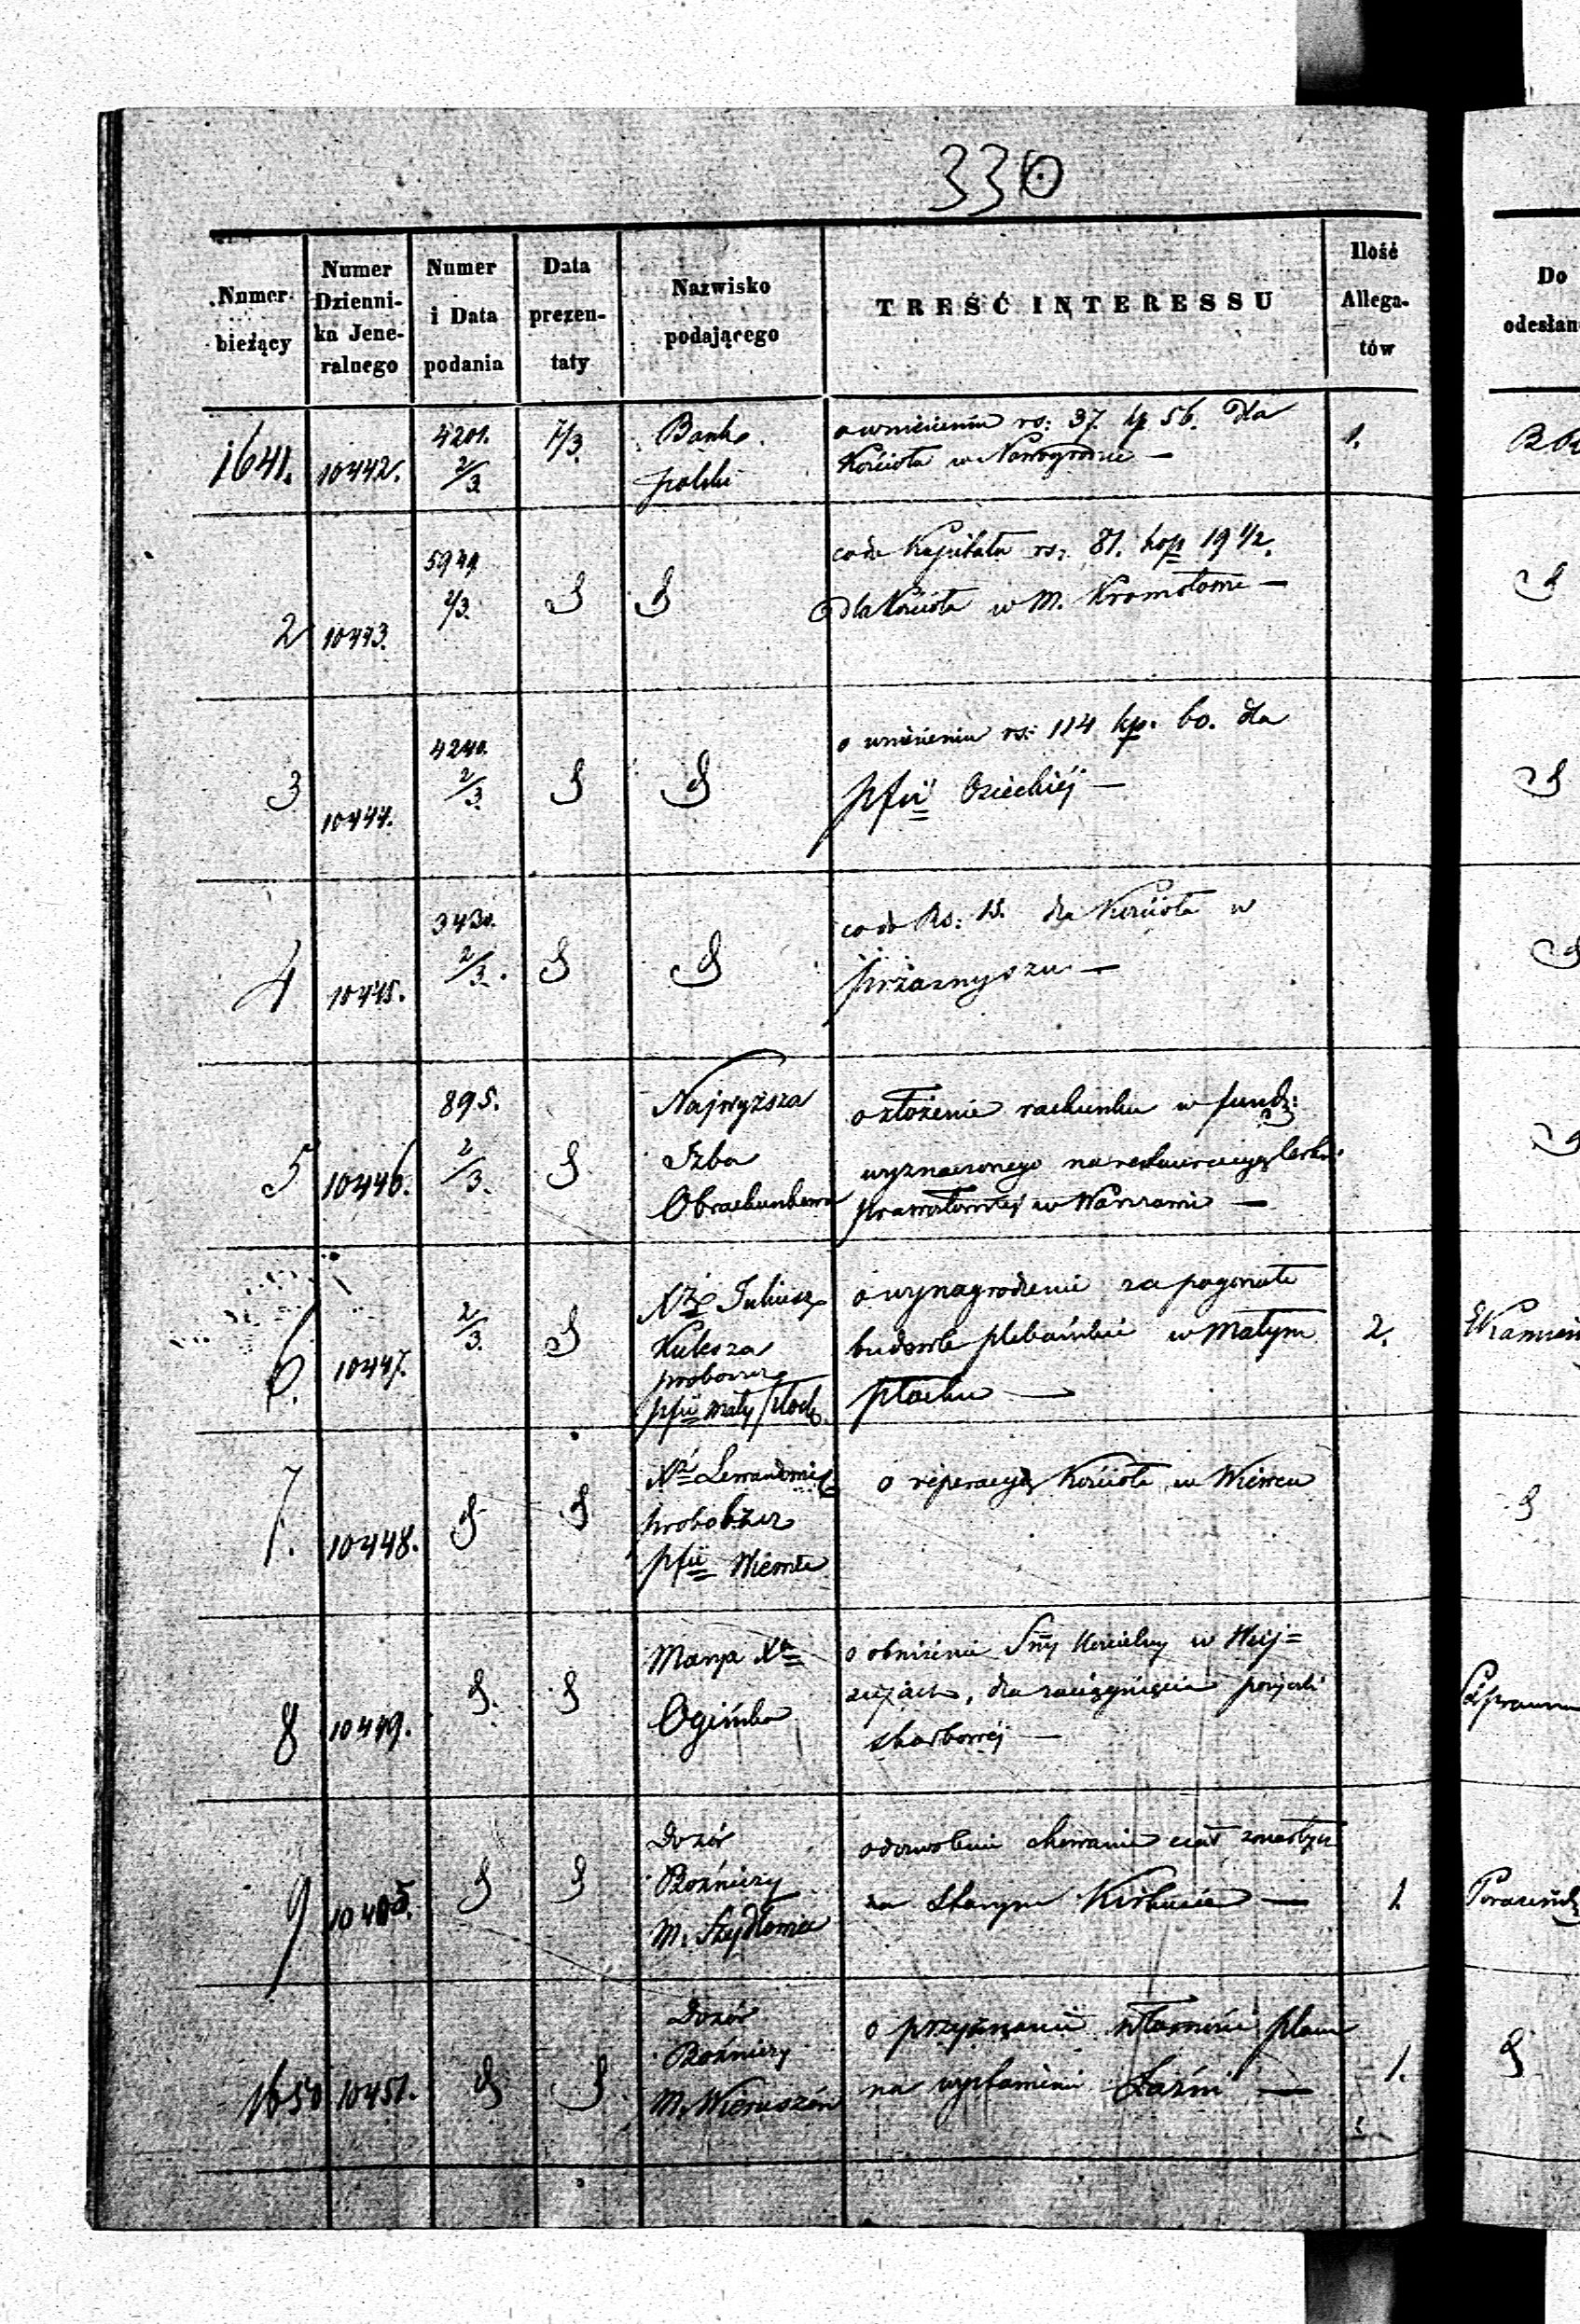 330
Numer bieżący
Numer Dzienni- ka Jene- ralnego
Numer i Data podania
Data prezen- taty
Nazwisko podającego
TREŚĆ INTERESSU
Ilość Allega- tów
Do
odesłan
1641.
10442.
4201.
2/3
7/3
Bank
polski
o wniesieniu rs: 37. kp 56. dla
Kościoła w Nowogrodzie —
1.
2
10443.
5949.
2/3.
co do Kapitału rs: 81. kop 19 1/2.
dla Kościoła w M. Kromołowie —
3
10444.
4240.
2/3.
o wniesieniu rs: 114 kp. 60. dla
pfii Osieckiéj —
4
10445.
3430.
2/3.
co do Rs: 15. dla Kościoła w
Przasnyszu —
5
10446.
895.
2/3.
Najwyższa
Izba
Obrachunkowa
o złożenie rachunku w fund:
wyznaczonego na restauracyą Cerkwi
prawosławnéj w Warszawie —
6.
10447.
2/3.
Xże Juliusz
Kulesza
proboszcz
pfii mały Płock.
o wynagrodzenie za pogorzałe
budowle plebańskie w Małym
Płocku —
2.
7.
10448.
Xdz Lewandowski
proboszcz
pfii
o reperacyą Kościoła w
8
10449.
Marya Xna
Ogińska
o obniżenie Smy Kościelney w Wiej=
dla zaciągnięcia pożyczki
skarbowéj —
9
Dozór
Bożniczy
M. Szydłowca
o dozwolenie chowania ciał zmarłych
na starym Kirkucie —
1.
1650
10451.
Dozór
Bożniczy
M. Wieruszów
o przyznanie własności placu
na wystawienie Łaźni —
1.